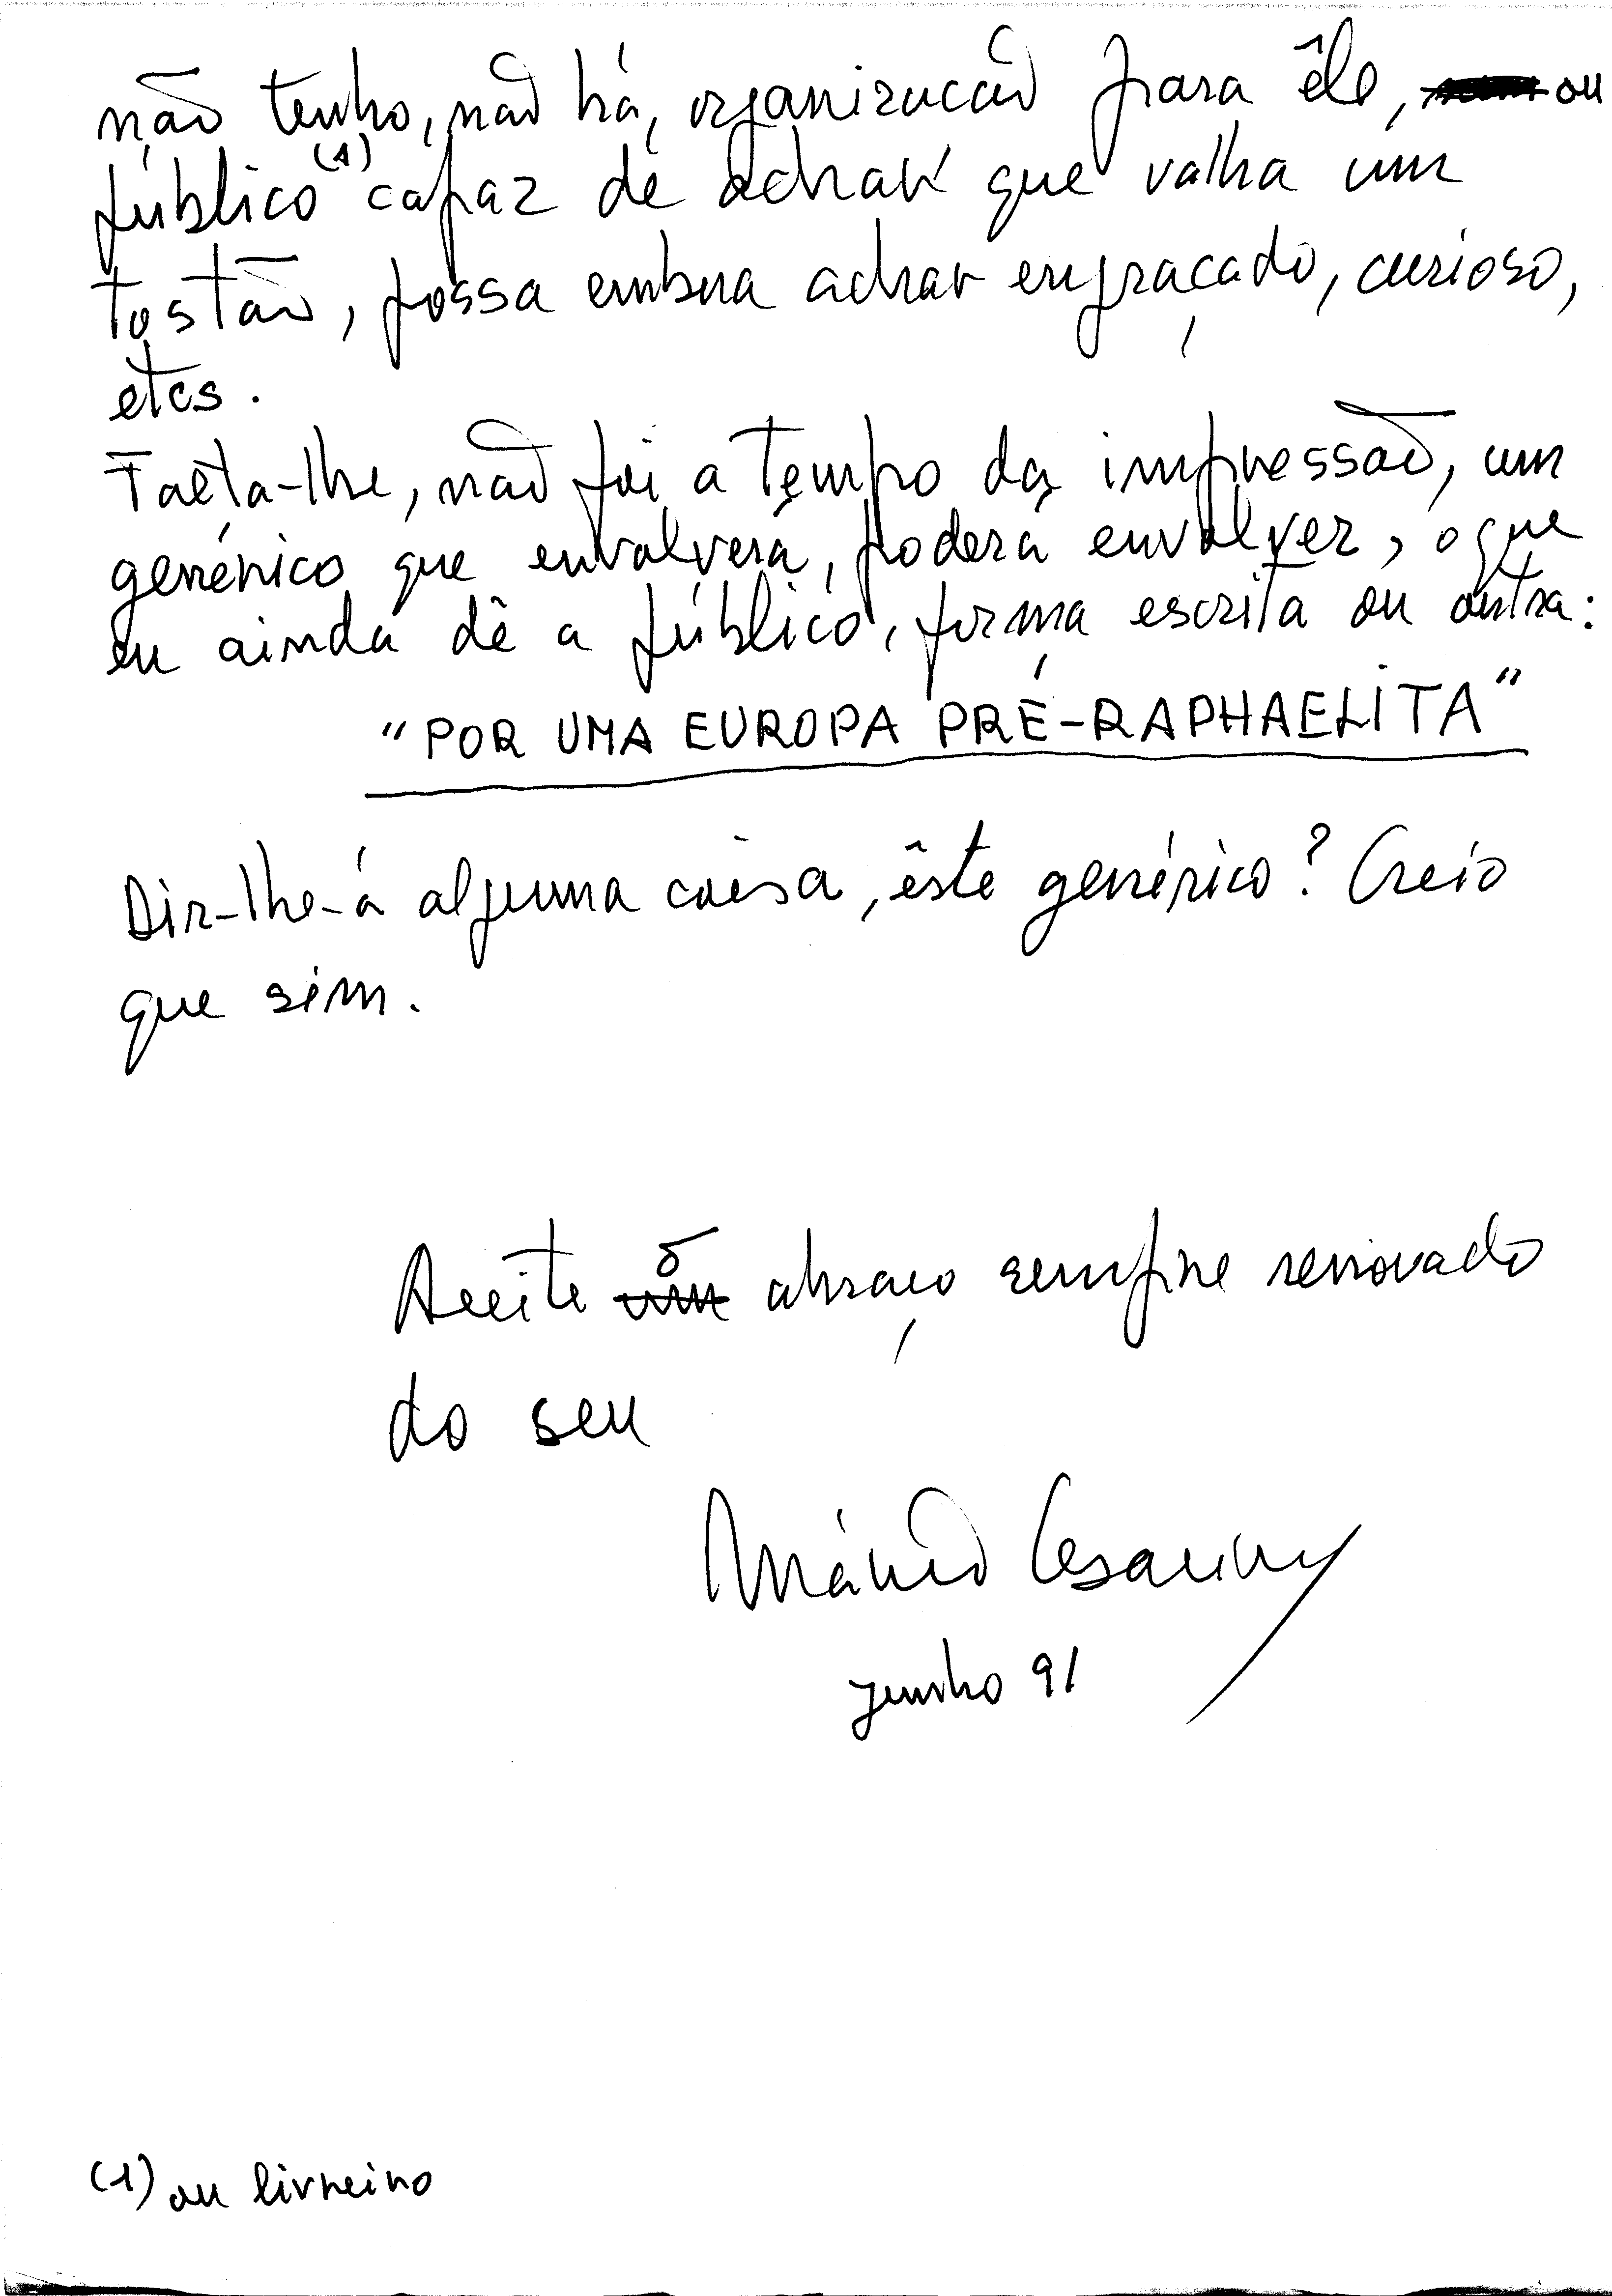 não tenho, não há, organização para êle, ou
público (1) capaz de achar que valha um
tostão, possa embora achar engraçado, curioso,
etcs.
Falta-lhe, não foi a tempo da impressão, um
genérico que envolverá, poderá envolver, o que
eu ainda dê a público, forma escrita ou outra:
"POR UMA EUROPA PRÉ-RAPHAELITA"
Dir-lhe-á alguma coisa, êste genérico? Creio
que sim.
Aceite um o abraço sempre renovado
do seu
Mário Cesariny
junho 91
(1) ou livreiro